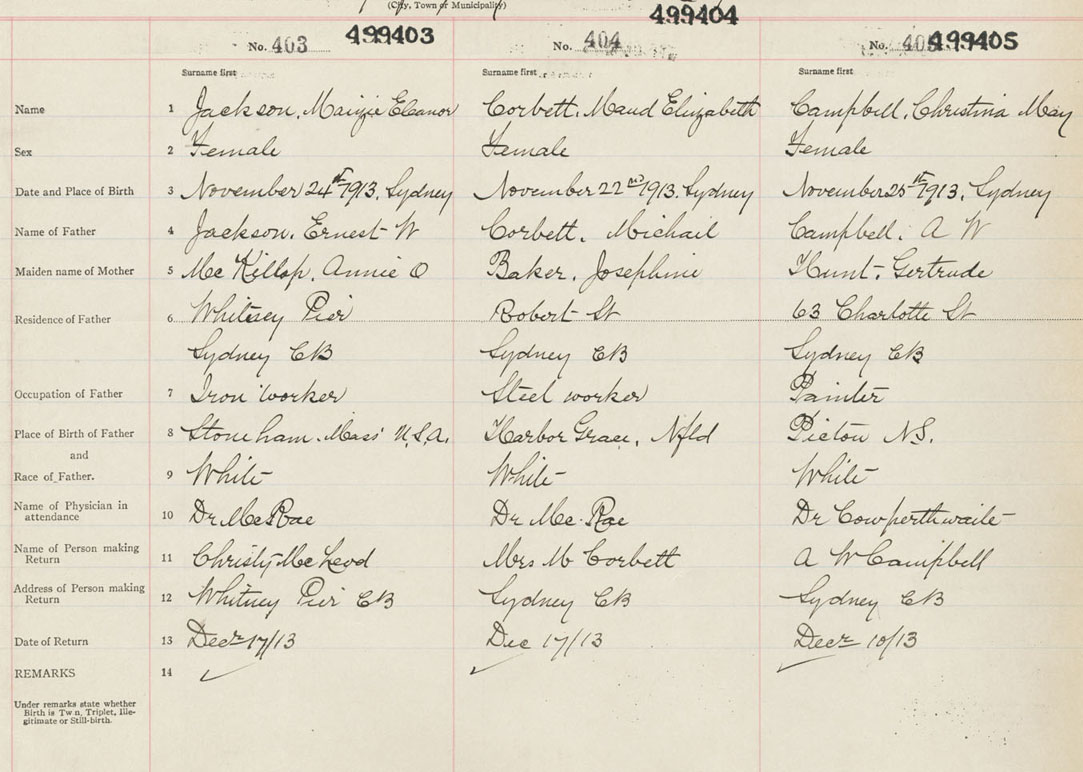 (City, Town or Municipality)
499404
No. 403 499403 No. 404 No. 405 499405
Surname first Surname first Surname first
Name 1 Jackson, Maizie Eleanor Corbett, Maud Elizabeth Campbell, Christina May
Sex 2 Female Female Female
Date and Place of Birth 3 November 24th 1913, Sydney November 22nd 1913, Sydney November 25th 1913, Sydney
Name of Father 4 Jackson, Ernest W Corbett, Michail Campbell, A W
Maiden name of Mother 5 Mc Killop, Annie O Baker, Josephine Hunt, Gertrude
Residence of Father 6 Whitney Pier Robert St 63 Charlotte St
Sydney CB Sydney CB Sydney CB
Occupation of Father 7 Iron worker Steel worker Painter
Place of Birth of Father 8 Stoneham. Mass' U.S.A. Harbor Grace, Nfld Pictou N.S.
and
Race of Father. 9 White White White
Name of Physician in
attendance 10 Dr McRae Dr Mc Rae Dr Cowperthwaite
Name of Person making
Return 11 Christy McLeod Mrs M Corbett A W Campbell
Address of Person making
Return 12 Whitney Pier CB Sydney CB Sydney CB
Date of Return 13 Decr 17/13 Dec 17/13 Decr 10/13
REMARKS 14
Under remarks state whether
Birth is Tw n, Triplet, Ille-
gitimate or Still-birth.